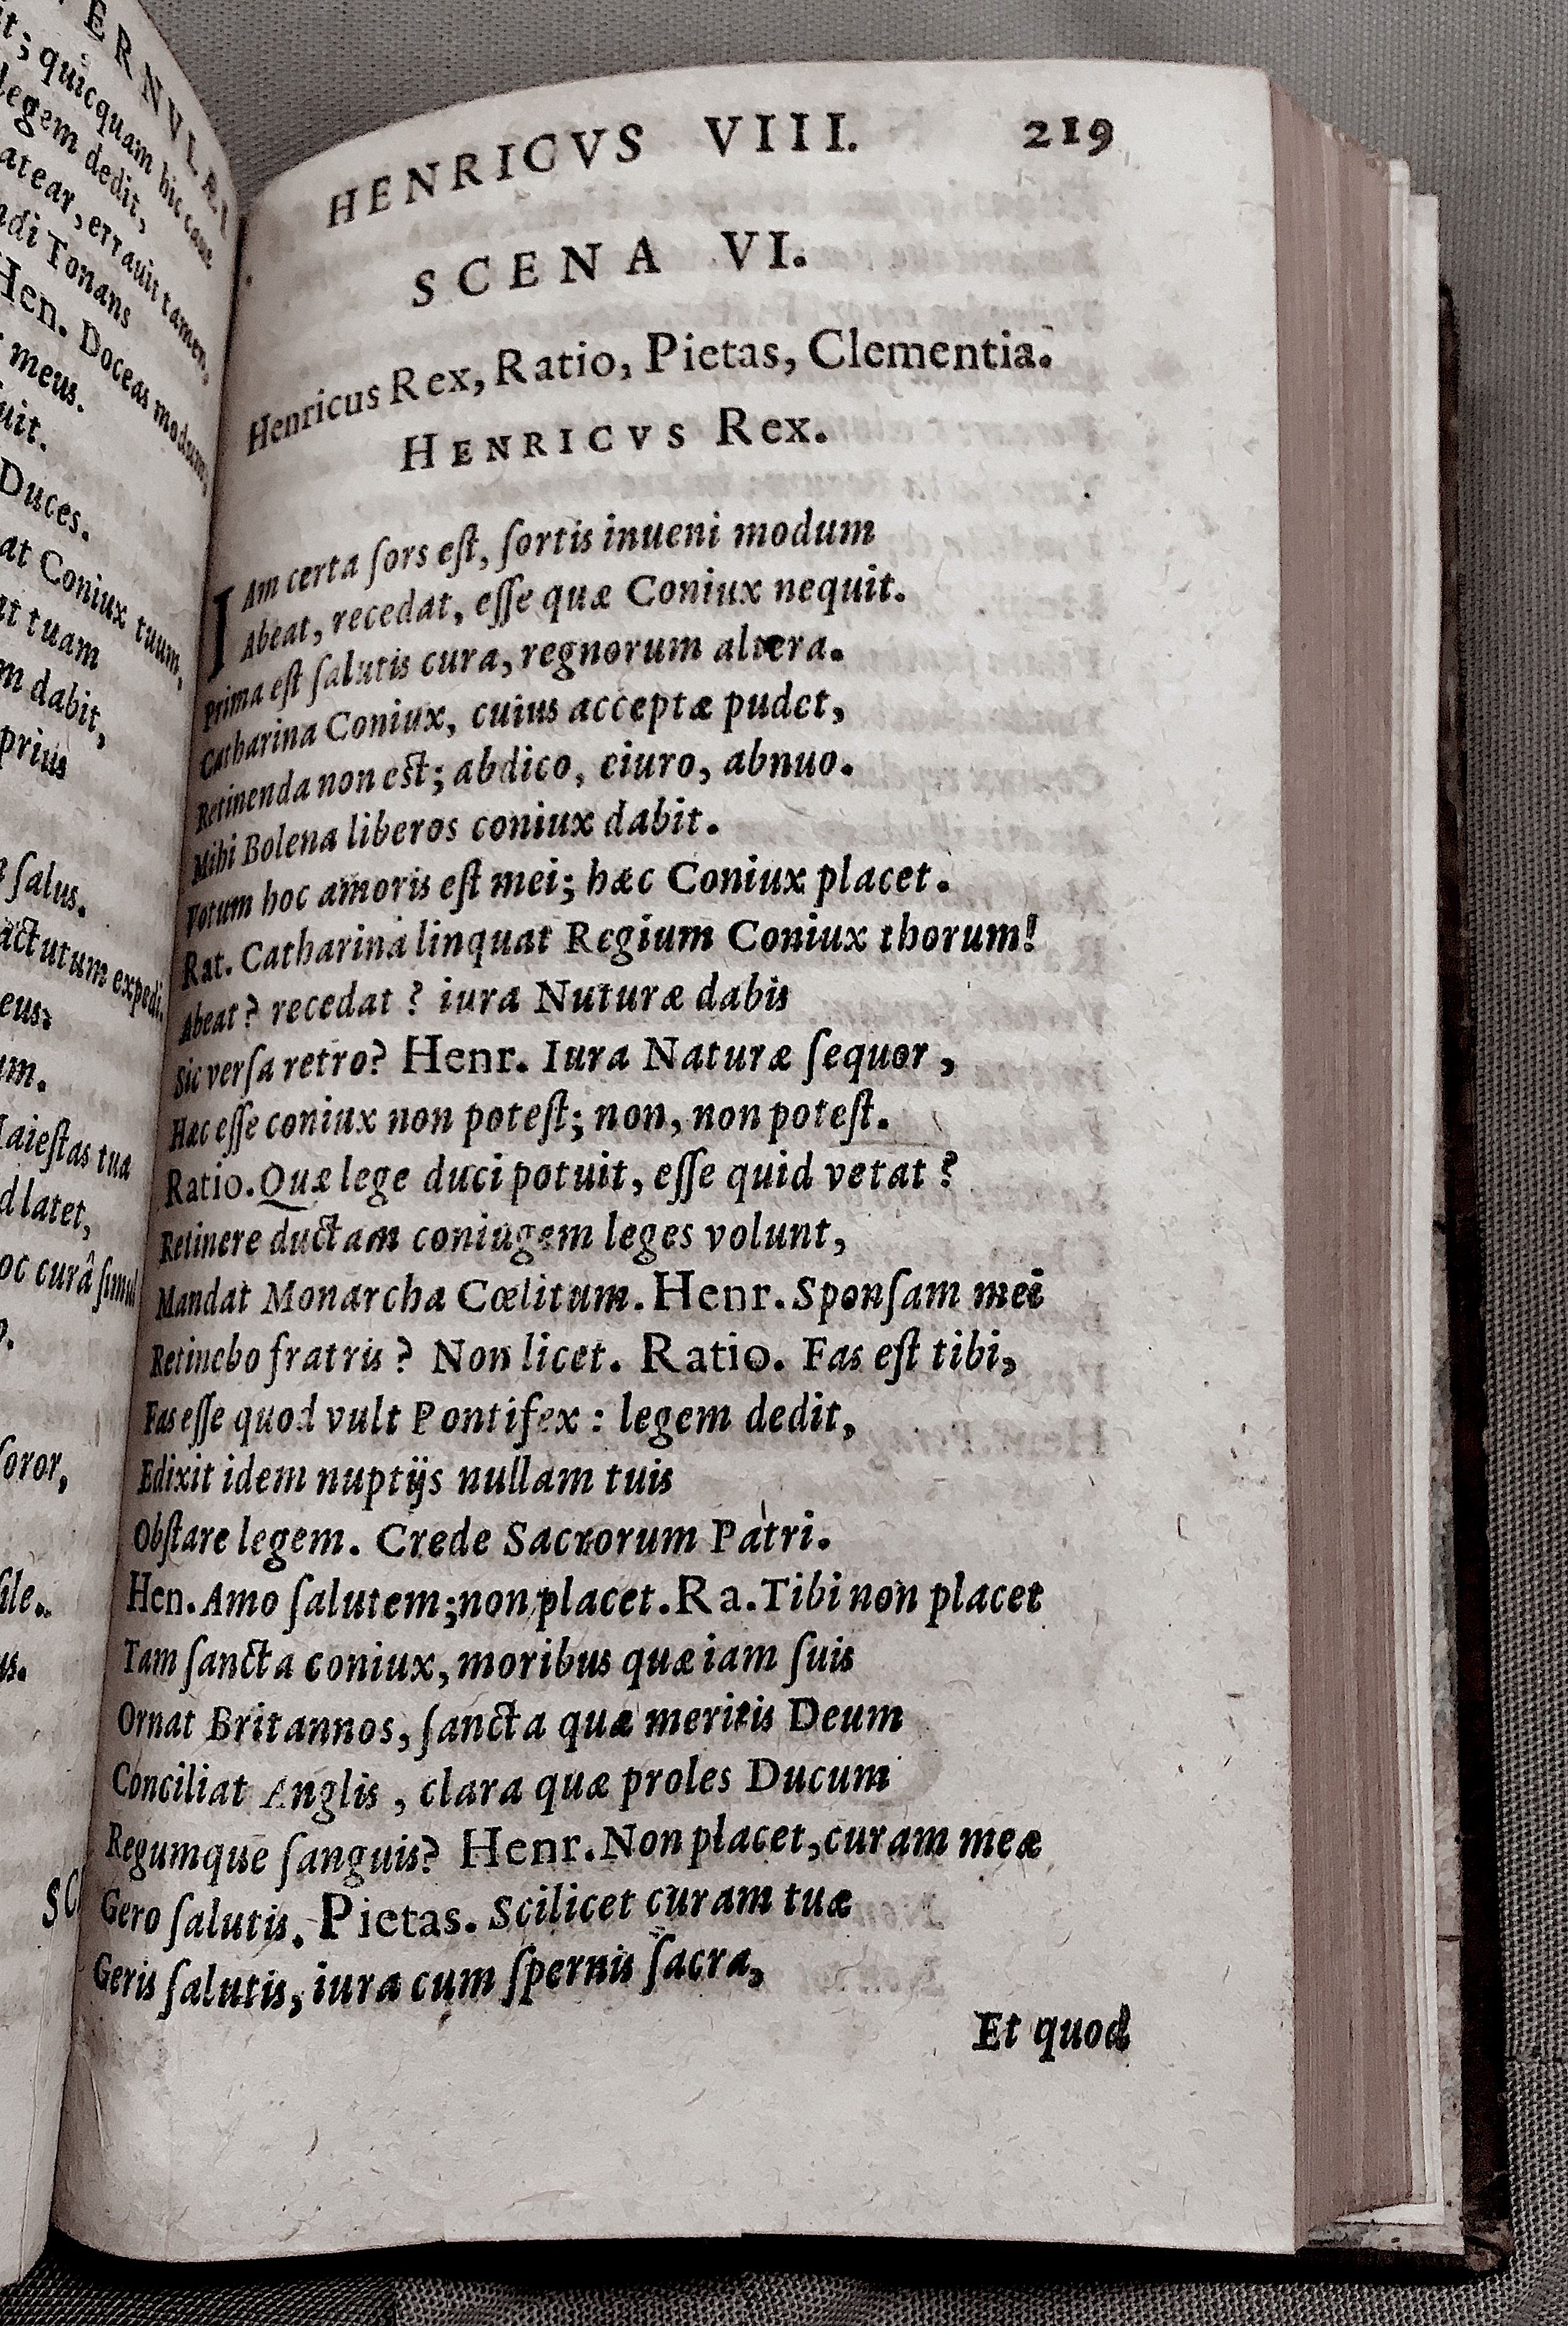 ERNVLÆI
t; quicquam hic caue
legem dedit,
atear, errauit tamen,
ndi Tonans
Hen. Doceas modum,
meus.
uit.
Duces.
at Coniux tuum,
at tuam
m dabit,
prius
ſalus.
actutum expedi.
eus:
um.
Maieſtas tua
d latet,
oc curâ ſimul
ſoror,
ſile.
us.
SC
HENRICVS VIII. 219
SCENA VI.
Henricus Rex, Ratio, Pietas, Clementia.
HENRICVS Rex.
IAm certa ſors eſt, ſortis inueni modum
Abeat, recedat, eſſe quæ Coniux nequit.
Prima eſt ſalutis cura, regnorum altera.
Catharina Coniux, cuius acceptæ pudet,
Retinenda non est; abdico, eiuro, abnuo.
Mihi Bolena liberos coniux dabit.
Votum hoc amoris eſt mei; hæc Coniux placet.
Rat. Catharina linquat Regium Coniux thorum!
Abeat? recedat? iura Nuturæ dabis
Sic verſa retro? Henr. Iura Naturæ ſequor,
Hæc eſſe coniux non poteſt; non, non poteſt.
Ratio. Quæ lege duci potuit, eſſe quid vetat?
Retinere ductam coniugem leges volunt,
Mandat Monarcha Cœlitum. Henr. Sponſam mei
Retinebo fratris? Non licet. Ratio. Fas eſt tibi,
Fas eſſe quod vult Pontifex: legem dedit,
Edixit idem nuptijs nullam tuis
Obſtare legem. Crede Sacrorum Patri.
Hen. Amo ſalutem; non placet. Ra. Tibi non placet
Tam ſancta coniux, moribus quæ iam ſuis
Ornat Britannos, ſancta quæ meritis Deum
Conciliat Anglis, clara quæ proles Ducum
Regumque ſanguis? Henr. Non placet, curam meæ
Gero ſalutis. Pietas. Scilicet curam tuæ
Geris ſalutis, iura cum ſpernis ſacra,
Et quod